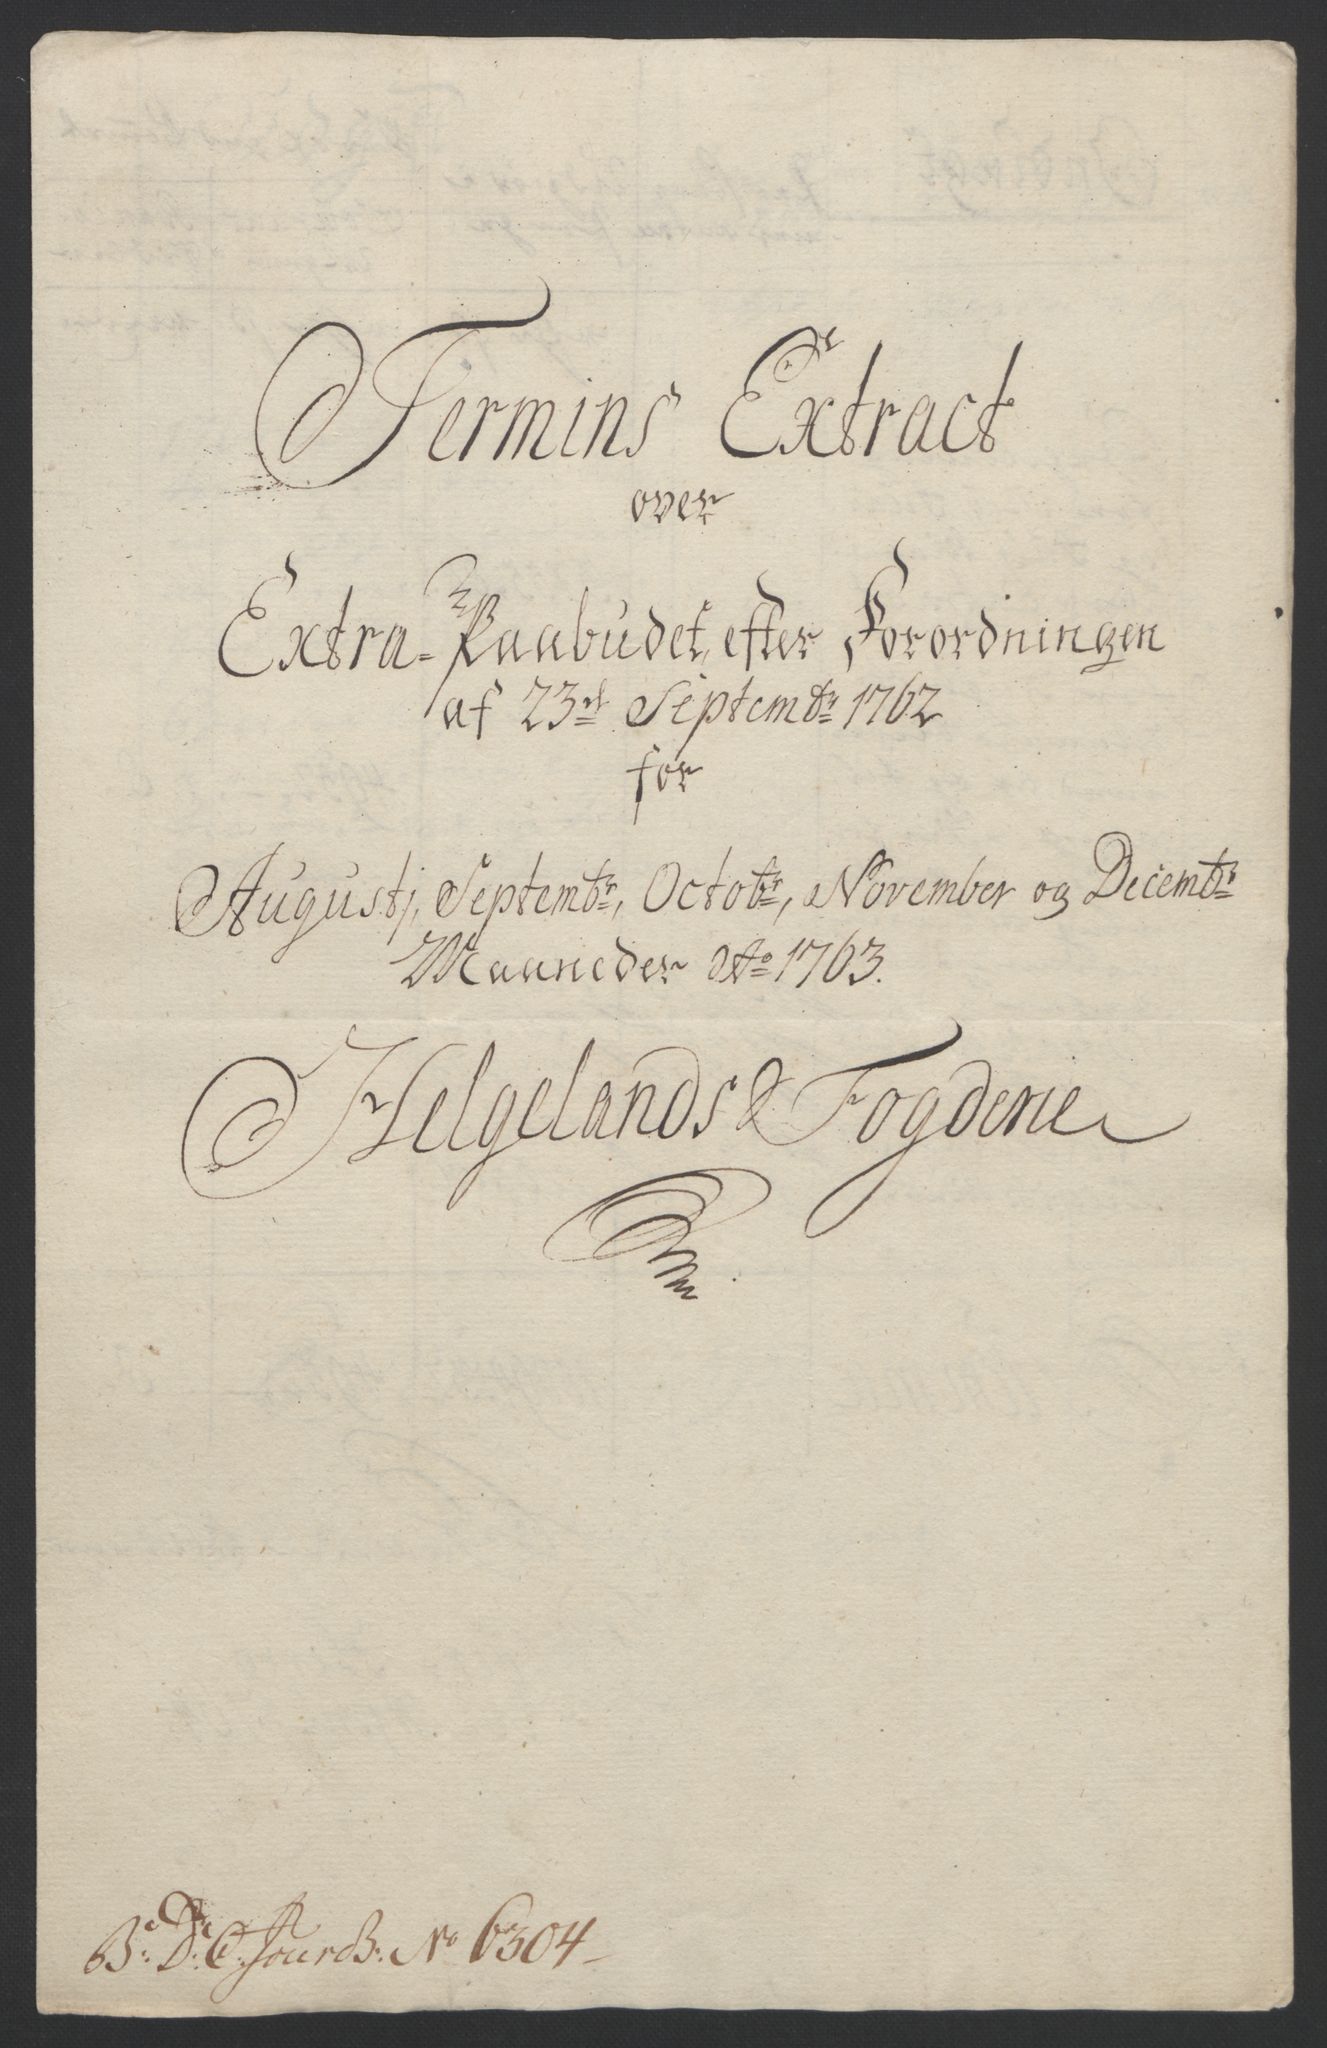 Termins Extract
over
Extra-Paabudet, efter Forordningen
af 23de Septembr: 1762
for
Augustj, Septembr:, Octobr:, November og Decembr:
Maaneder Ao 1763.
Helgelands Fogderie
JourB: No 6304